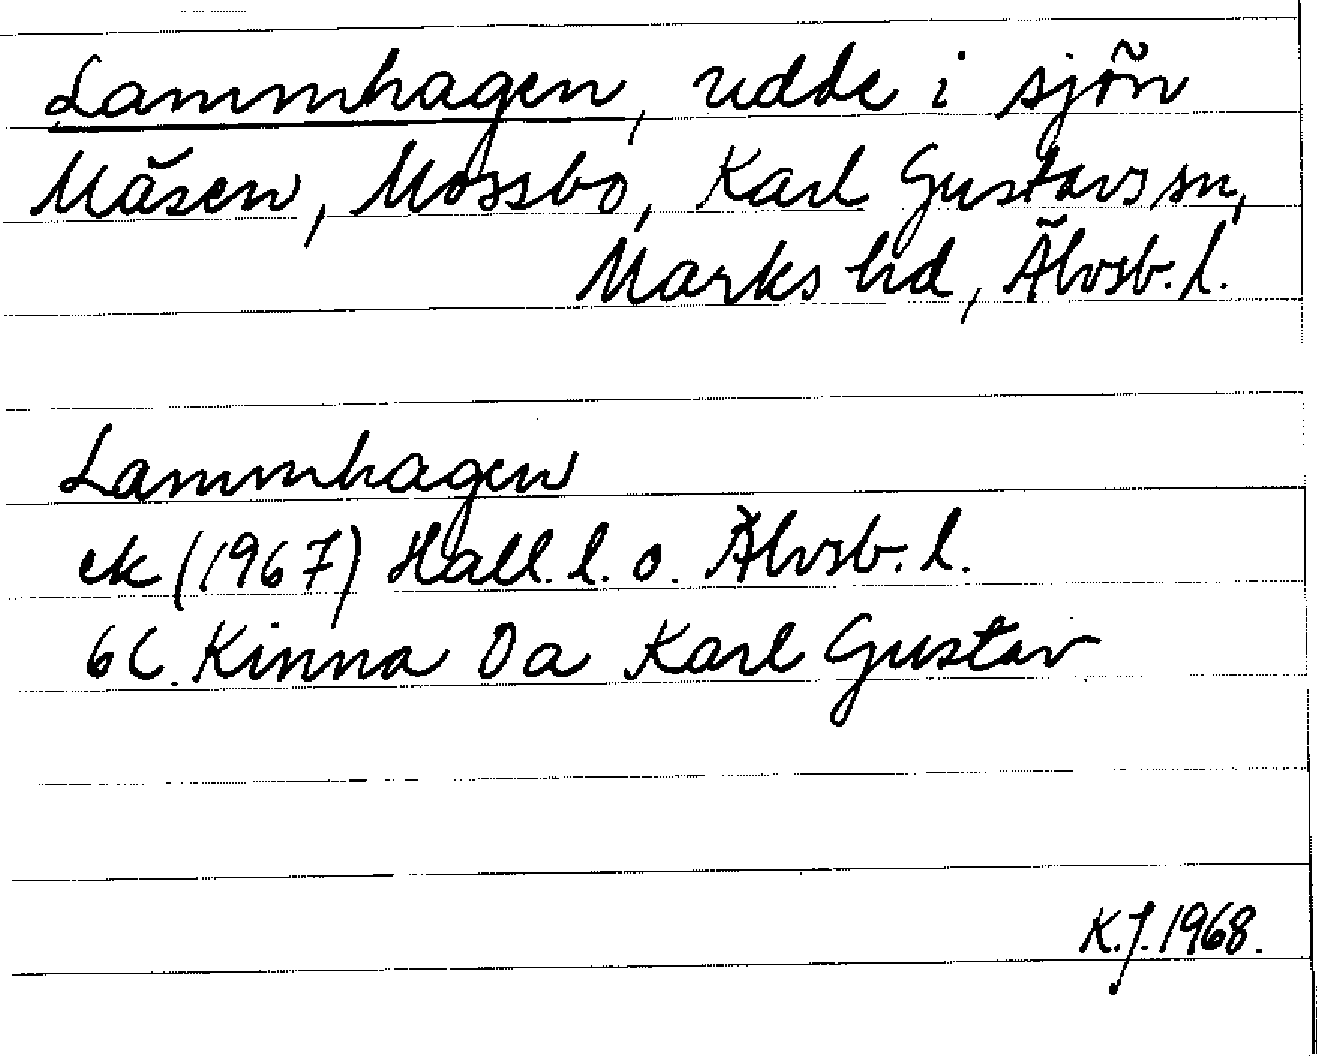 Lammhagen, udde i sjön
Mäsen, Mossbo, Karl Gustavs sn,
Marks hd, Älvsb. l.
Lammhagen
ek (1967) Hall. l. o. Älvsb. l.
6C Kinna 0a Karl Gustav
K.J. 1968.